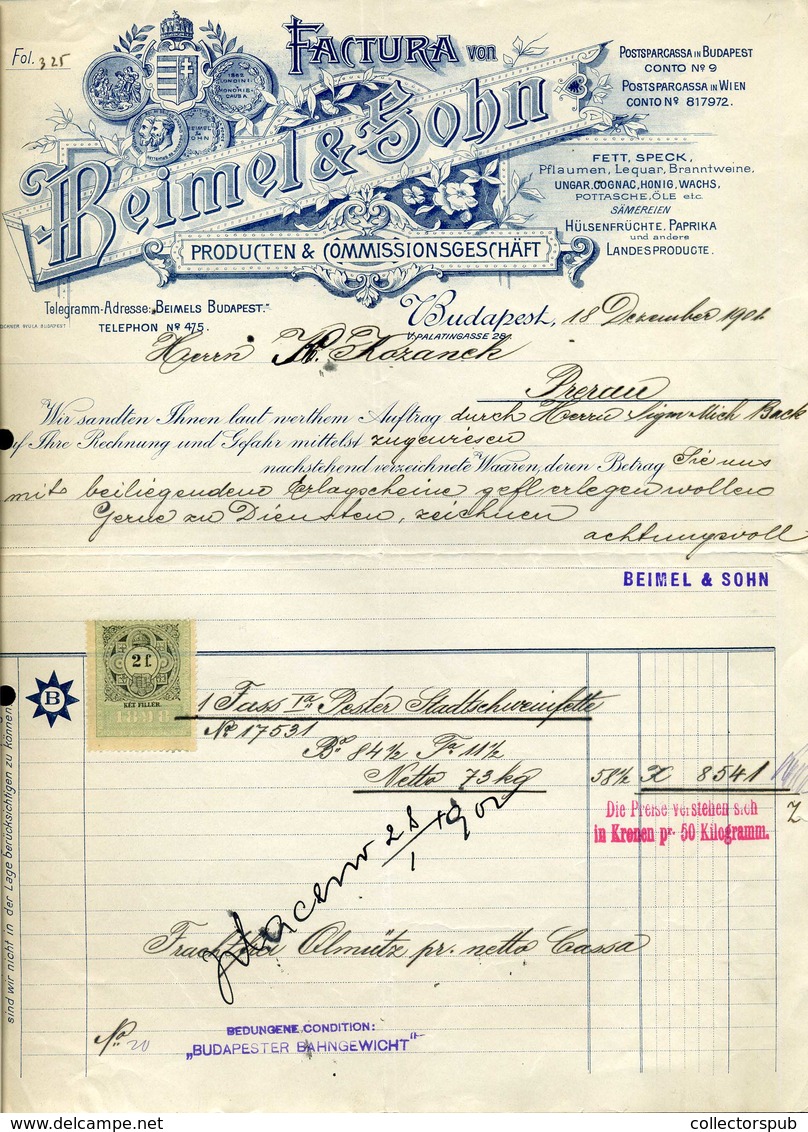 Fol. 325
FACTURA von
Beimel & Sohn
PRODUCTEN & COMMISSIONSGESCHÄFT
1882
LONDINI
HONORIS
CAUSA
BEIMEL
& SOHN
POSTSPARCASSA IN BUDAPEST
CONTO Nº 9
POSTSPARCASSA IN WIEN
CONTO Nº 817972.
FETT, SPECK,
Pflaumen, Lequar, Branntweine,
UNGAR. COGNAC, HONIG, WACHS,
POTTASCHE, ÖLE etc.
SÄMEREIEN
HÜLSENFRÜCHTE, PAPRIKA
und andere
LANDESPRODUCTE.
Telegramm-Adresse: „BEIMELS BUDAPEST."
TELEPHON Nº 475.
Budapest, 18 Dezember 1901
V. PALATINGASSE 28
Herrn K. Kozanek
Prerau
Wir sandten Ihnen laut werthem Auftrag durch Herrn Sigm Mich Back
uf Ihre Rechnung und Gefahr mittelst zugewiesen
nachstehend verzeichnete Waaren, deren Betrag Sie uns
mit beiliegendem Erlagscheine gefl erlegen wollen
Gerne zu Diensten, zeichnen
achtungsvoll
BEIMEL & SOHN
2 f.
KÉT FILLÉR
1898
B
1 Fass Iª Pester Stadtschweinfette
Nº 17531
Bº 84½ Tª 11½
Netto 73 kg 58½ K 8541
Die Preise verstehen sich
in Kronen pr. 50 Kilogramm.
28/1 1902
Olmütz pr. netto Cassa
Nº 20
BEDUNGENE CONDITION:
„BUDAPESTER BAHNGEWICHT"
sind wir nicht in der Lage berücksichtigen zu können.
collectorspub